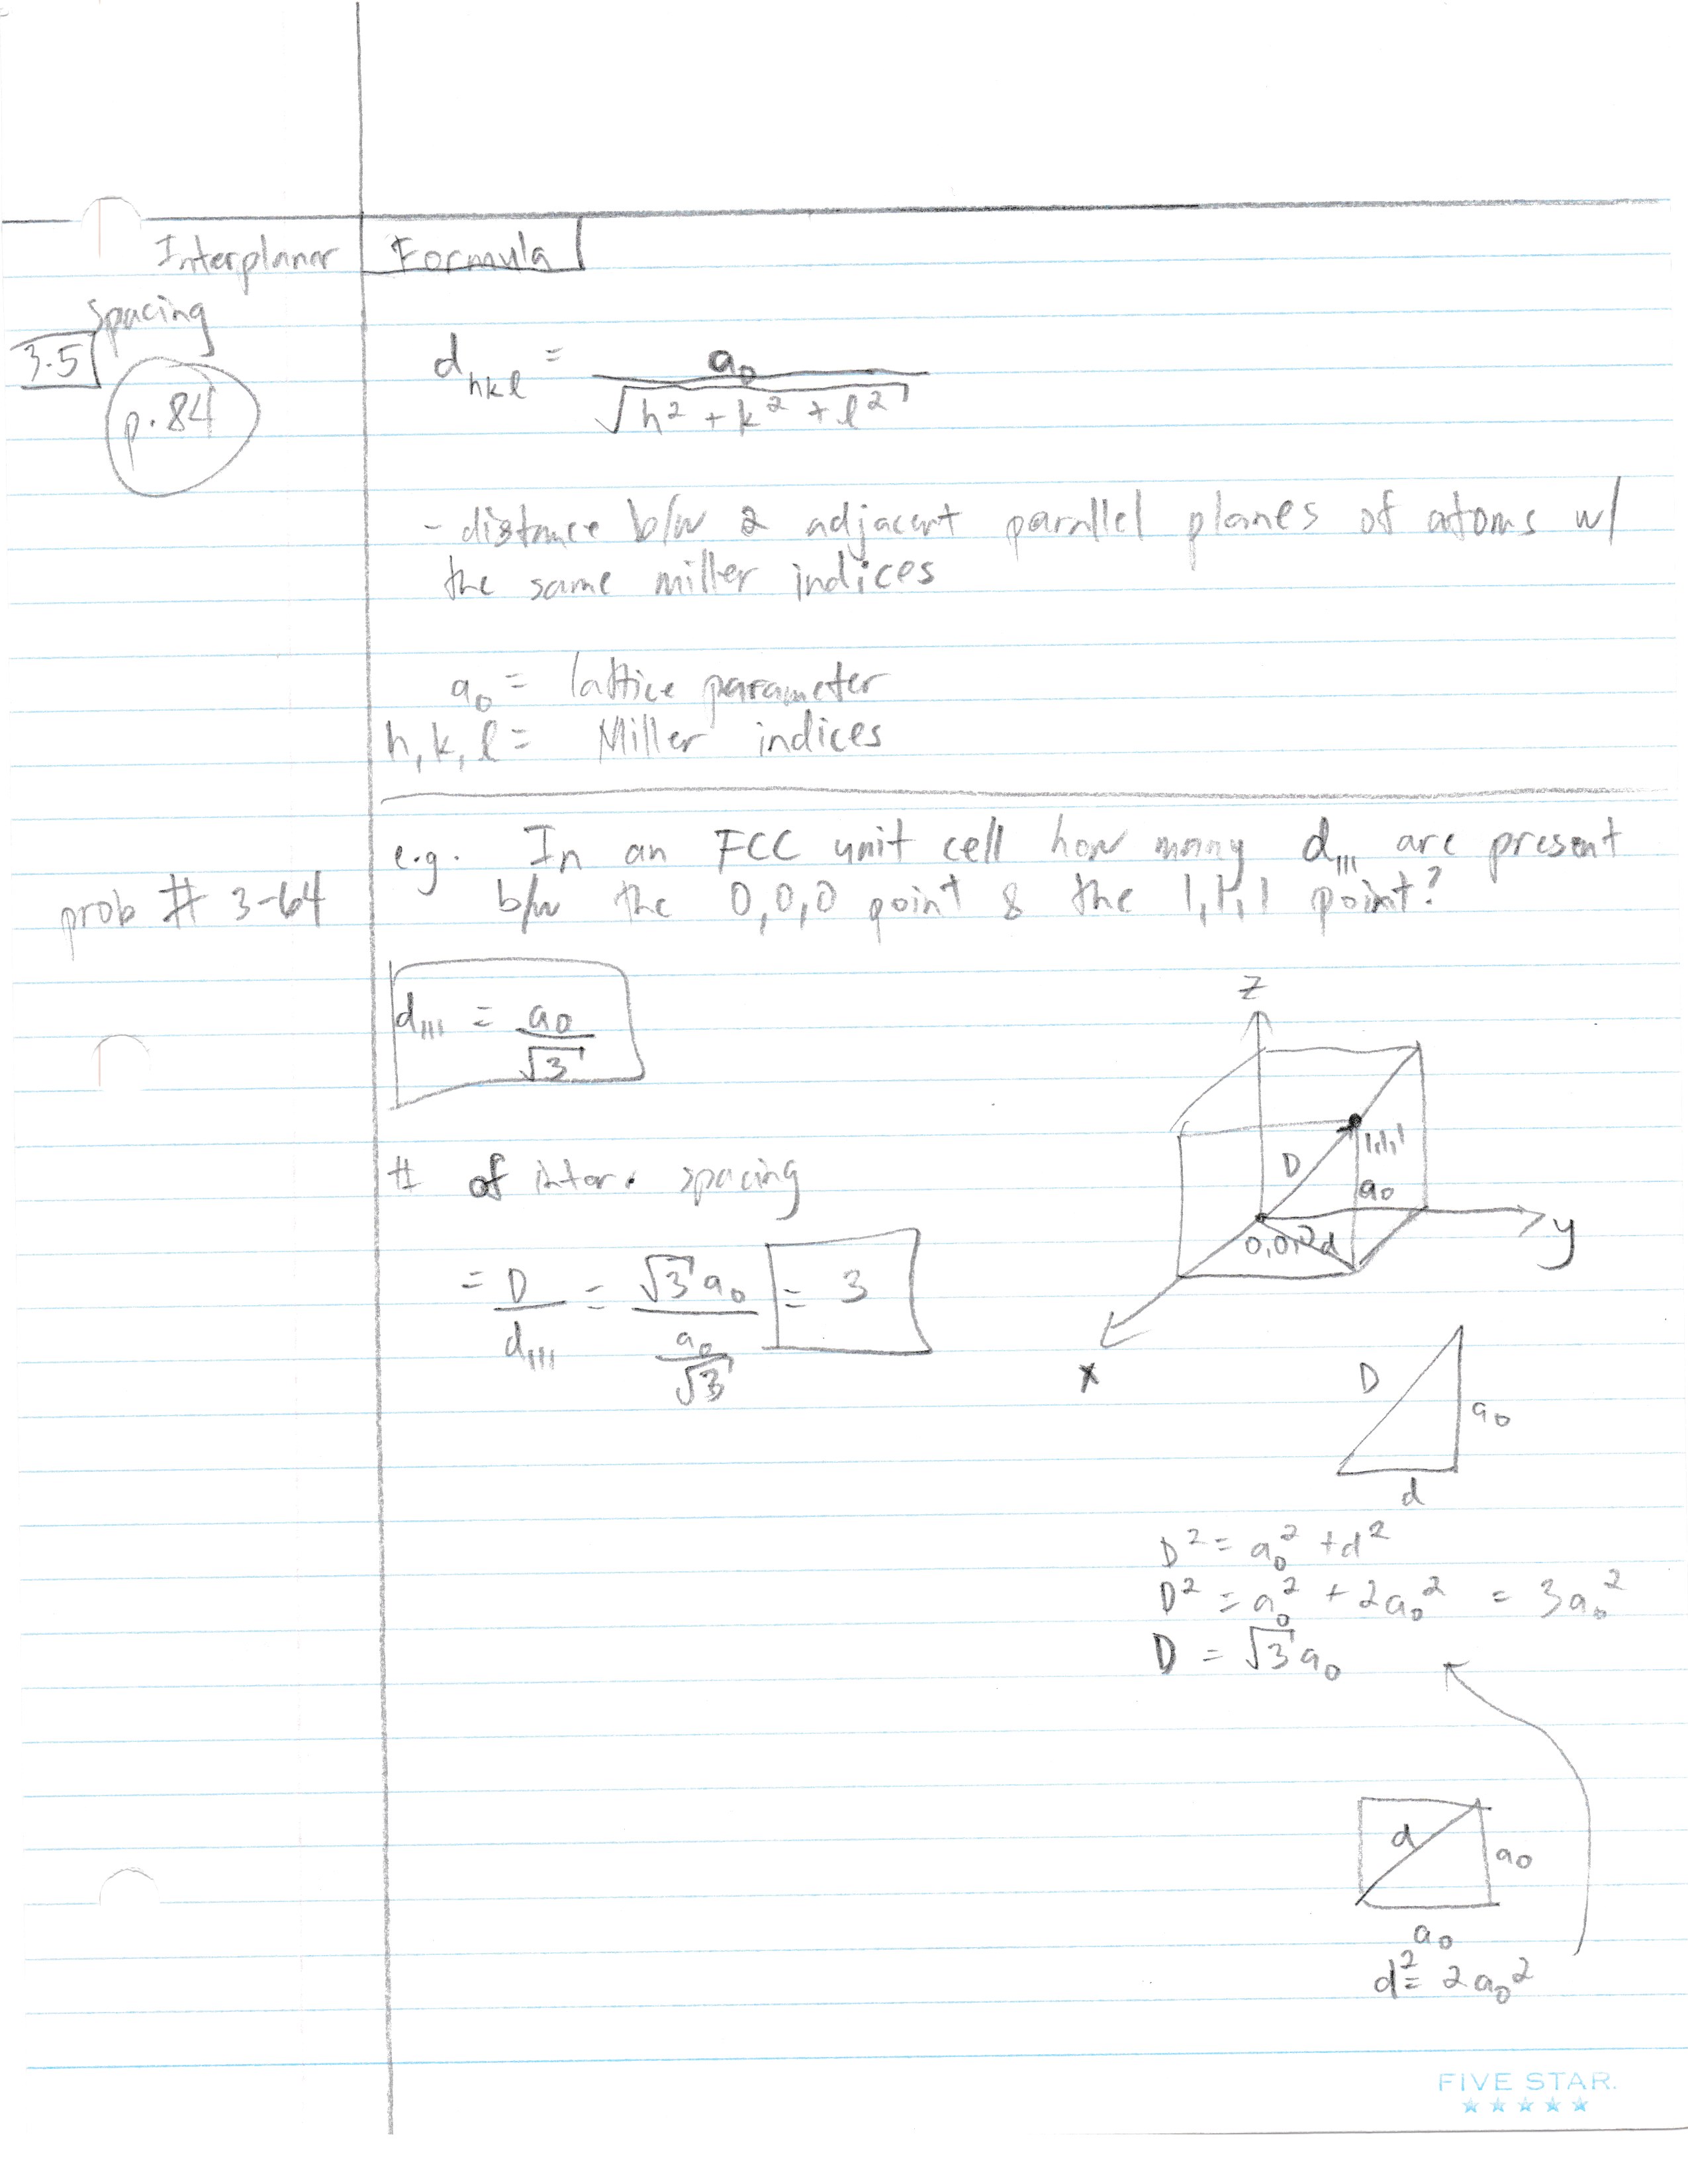 Interplanar
Spacing
3.5
p. 84
Formula
d_hkl = a₀ / √(h² + k² + l²)
- distance b/w 2 adjacent parallel planes of atoms w/
the same miller indices
a₀ = lattice parameter
h, k, l = Miller indices
prob # 3-64
e.g. In an FCC unit cell how many d₁₁₁ are present
b/w the 0,0,0 point & the 1,1,1 point?
d₁₁₁ = a₀ / √3
# of inter. spacing
= D / d₁₁₁ = √3 a₀ / (a₀ / √3) = 3
z
1,1,1
D
a₀
0,0,0
d
y
x
D
a₀
d
D² = a₀² + d²
D² = a₀² + 2a₀² = 3a₀²
D = √3 a₀
d
a₀
a₀
d² = 2a₀²
FIVE STAR.
★★★★★